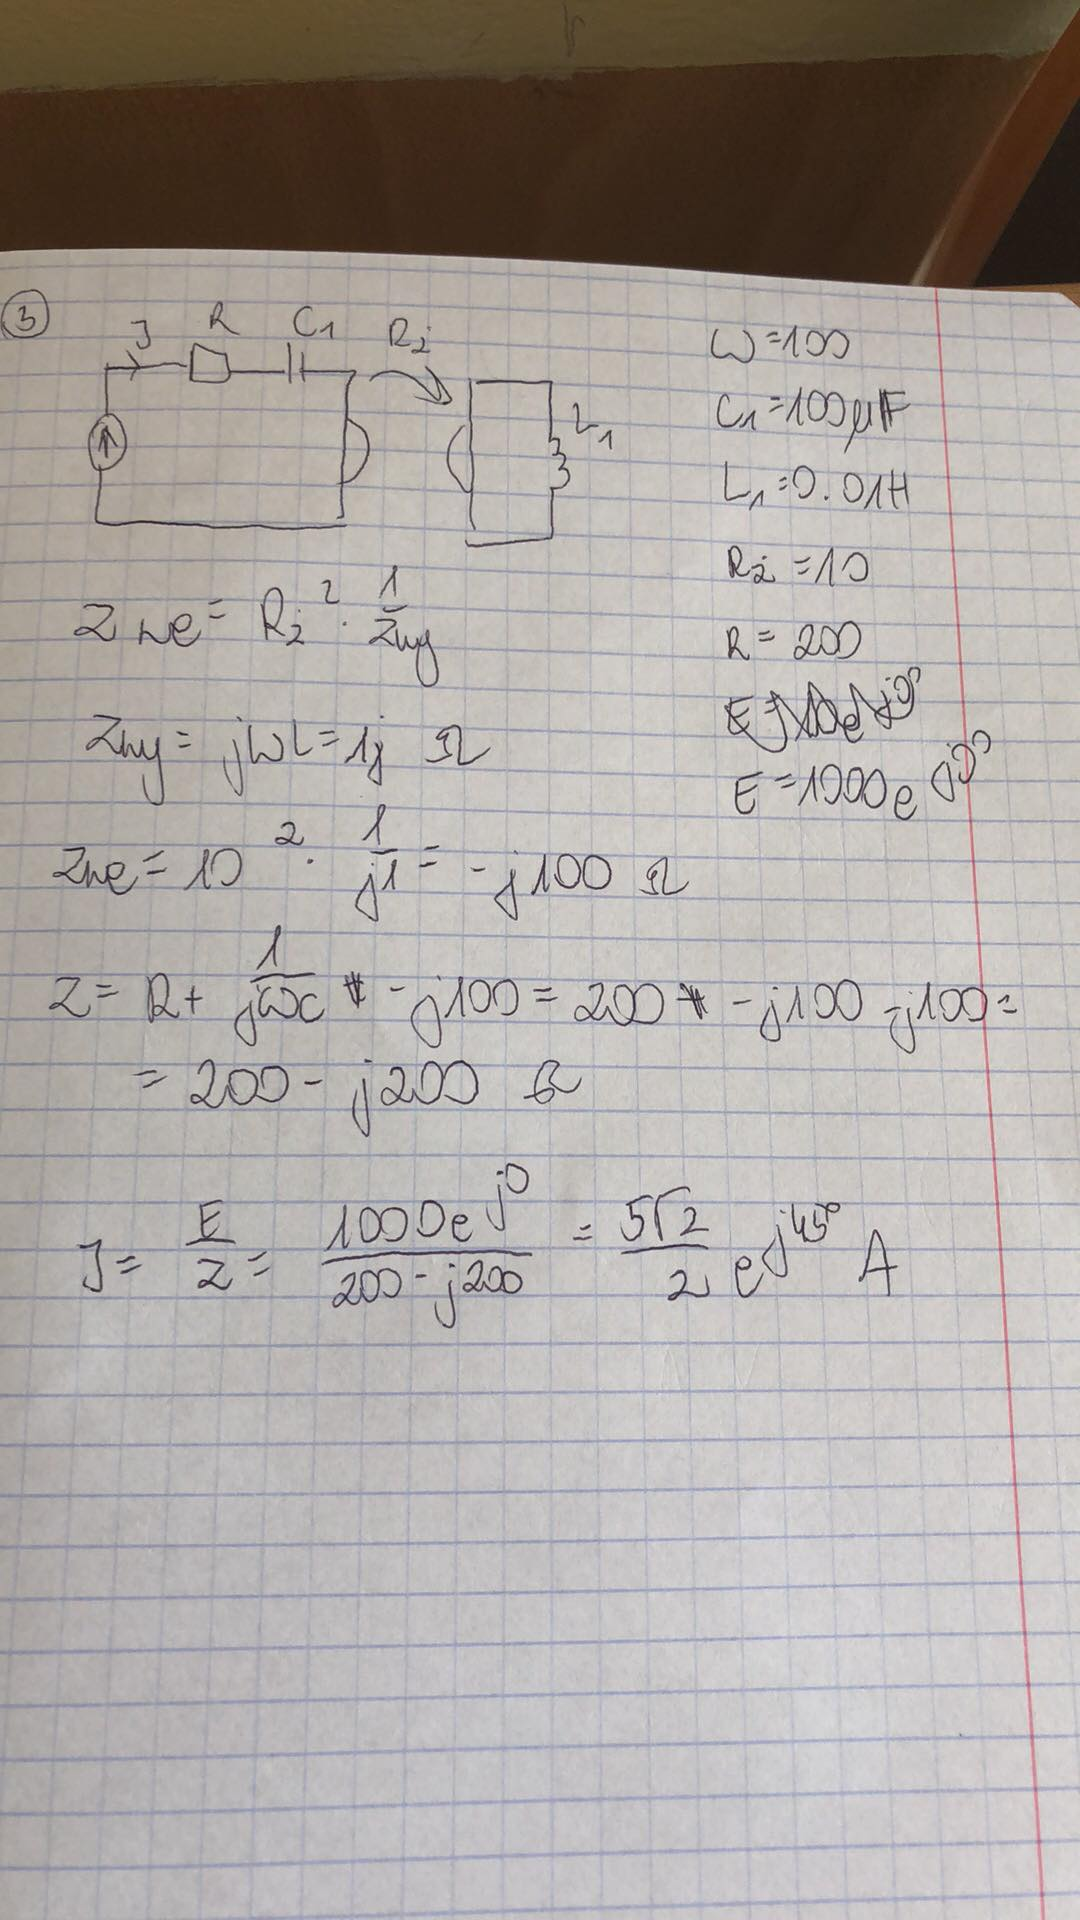 3
J R C1 Rż
L1
ω=100
C1=100µF
L1=0.01H
Rż=10
R=200
E=1000e^j0°
Zwe = Rż² · 1/Zwy
Zwy = jωL = 1j Ω
Zwe = 10² · 1/j1 = -j100 Ω
Z = R + 1/jωC - j100 = 200 - j100 - j100 =
= 200 - j200 Ω
J = E/Z = 1000e^j0/200-j200 = 5√2/2 e^j45° A